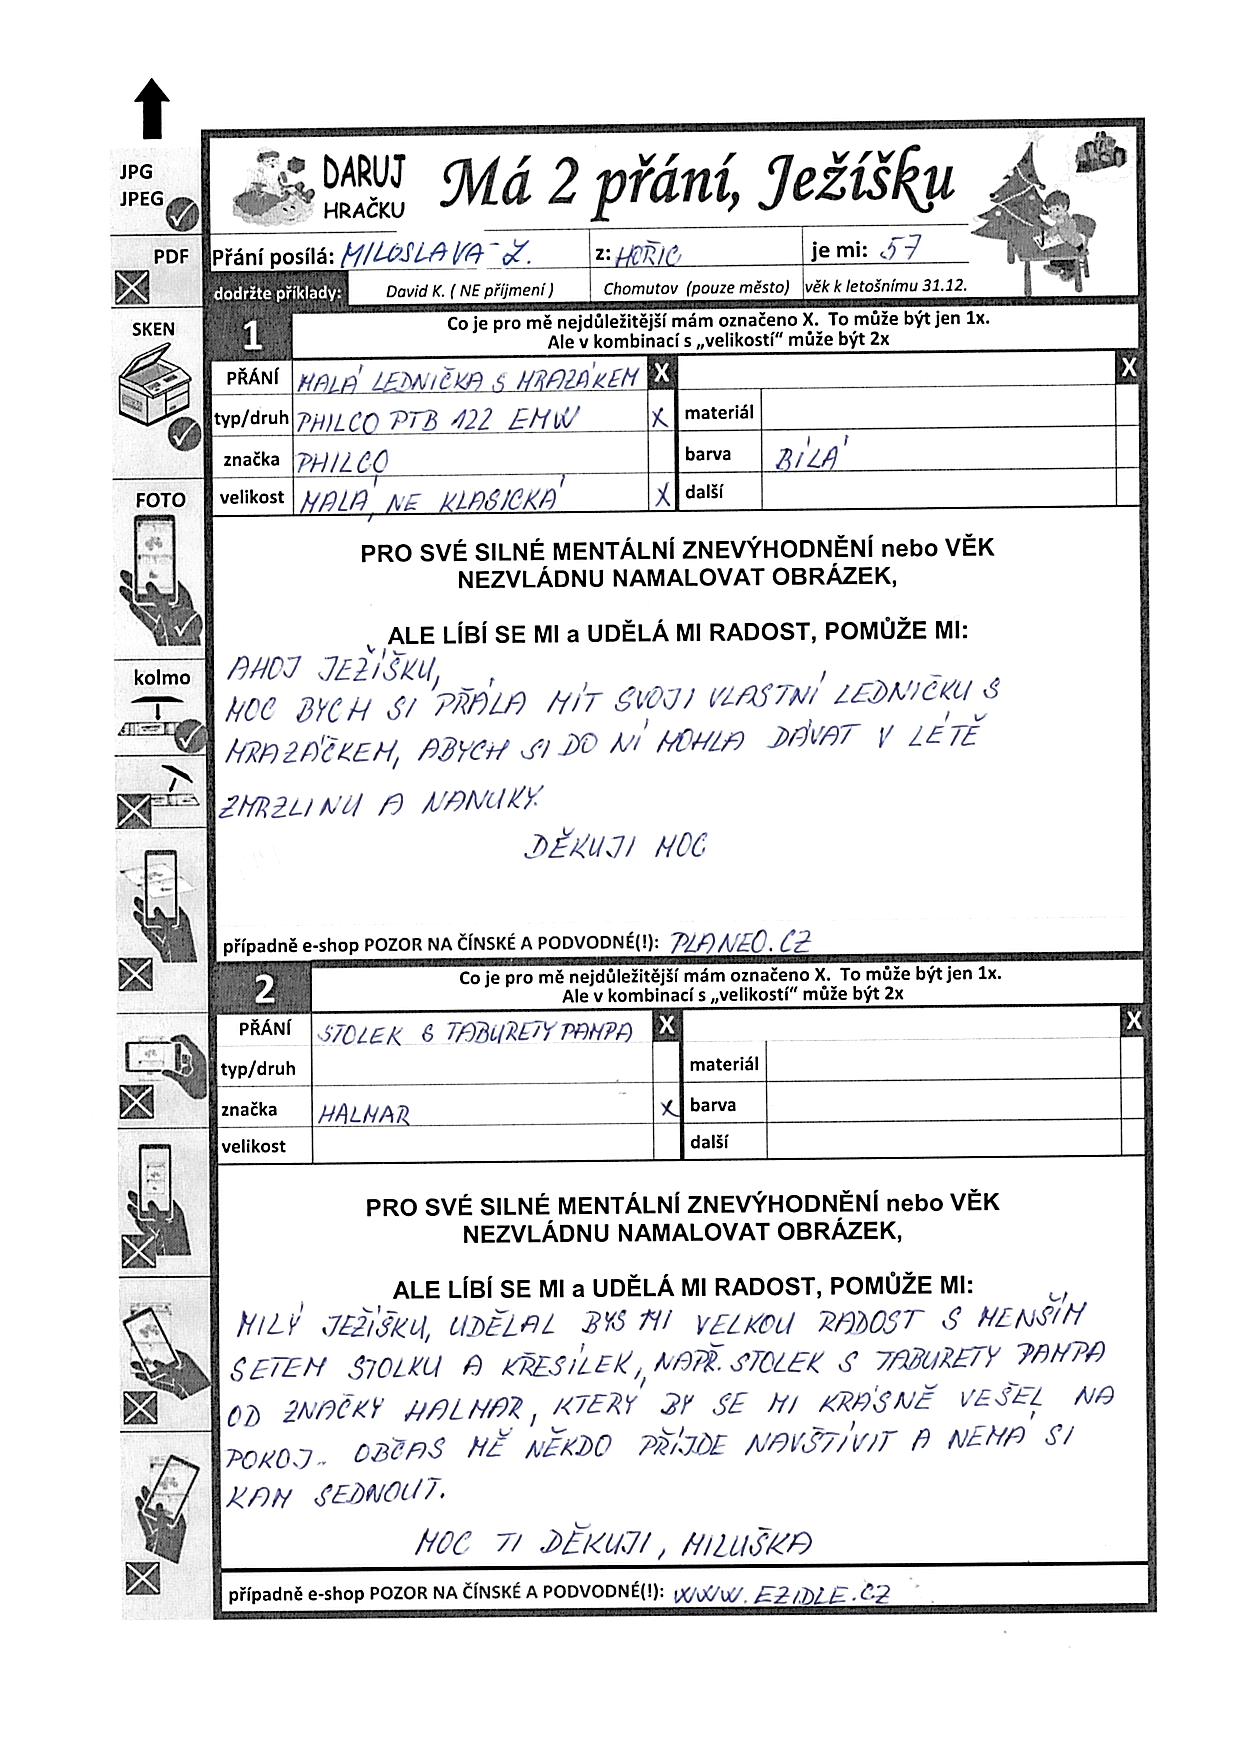 JPG
JPEG
PDF
SKEN
FOTO
kolmo
DARUJ
HRAČKU
Má 2 přání, Ježíšku
Přání posílá: MILOSLAVA Z. z: HOŘIC je mi: 57
dodržte příklady: David K. ( NE příjmení ) Chomutov (pouze město) věk k letošnímu 31.12.
1 Co je pro mě nejdůležitější mám označeno X. To může být jen 1x.
Ale v kombinaci s „velikostí“ může být 2x
PŘÁNÍ MALÁ LEDNIČKA S MRAZÁKEM X X
typ/druh PHILCO PTB 122 EMW X materiál
značka PHILCO barva BÍLÁ
velikost MALÁ, NE KLASICKÁ X další
PRO SVÉ SILNÉ MENTÁLNÍ ZNEVÝHODNĚNÍ nebo VĚK
NEZVLÁDNU NAMALOVAT OBRÁZEK,
ALE LÍBÍ SE MI a UDĚLÁ MI RADOST, POMŮŽE MI:
AHOJ JEŽÍŠKU,
MOC BYCH SI PŘÁLA MÍT SVOJI VLASTNÍ LEDNIČKU S
MRAZÁČKEM, ABYCH SI DO NÍ MOHLA DÁVAT V LÉTĚ
ZMRZLINU A NANUKY.
DĚKUJI MOC
případně e-shop POZOR NA ČÍNSKÉ A PODVODNÉ(!): PLANEO.CZ
2 Co je pro mě nejdůležitější mám označeno X. To může být jen 1x.
Ale v kombinaci s „velikostí“ může být 2x
PŘÁNÍ STOLEK S TABURETY PAMPA X X
typ/druh materiál
značka HALMAR X barva
velikost další
PRO SVÉ SILNÉ MENTÁLNÍ ZNEVÝHODNĚNÍ nebo VĚK
NEZVLÁDNU NAMALOVAT OBRÁZEK,
ALE LÍBÍ SE MI a UDĚLÁ MI RADOST, POMŮŽE MI:
MILÝ JEŽÍŠKU, UDĚLAL BYS MI VELKOU RADOST S MENŠÍM
SETEM STOLKU A KŘESÍLEK, NAPŘ. STOLEK S TABURETY PAMPA
OD ZNAČKY HALMAR, KTERÝ BY SE MI KRÁSNĚ VEŠEL NA
POKOJ.. OBČAS MĚ NĚKDO PŘIJDE NAVŠTÍVIT A NEMÁ SI
KAM SEDNOUT.
MOC TI DĚKUJI, MILUŠKA
případně e-shop POZOR NA ČÍNSKÉ A PODVODNÉ(!): WWW.EZIDLE.CZ